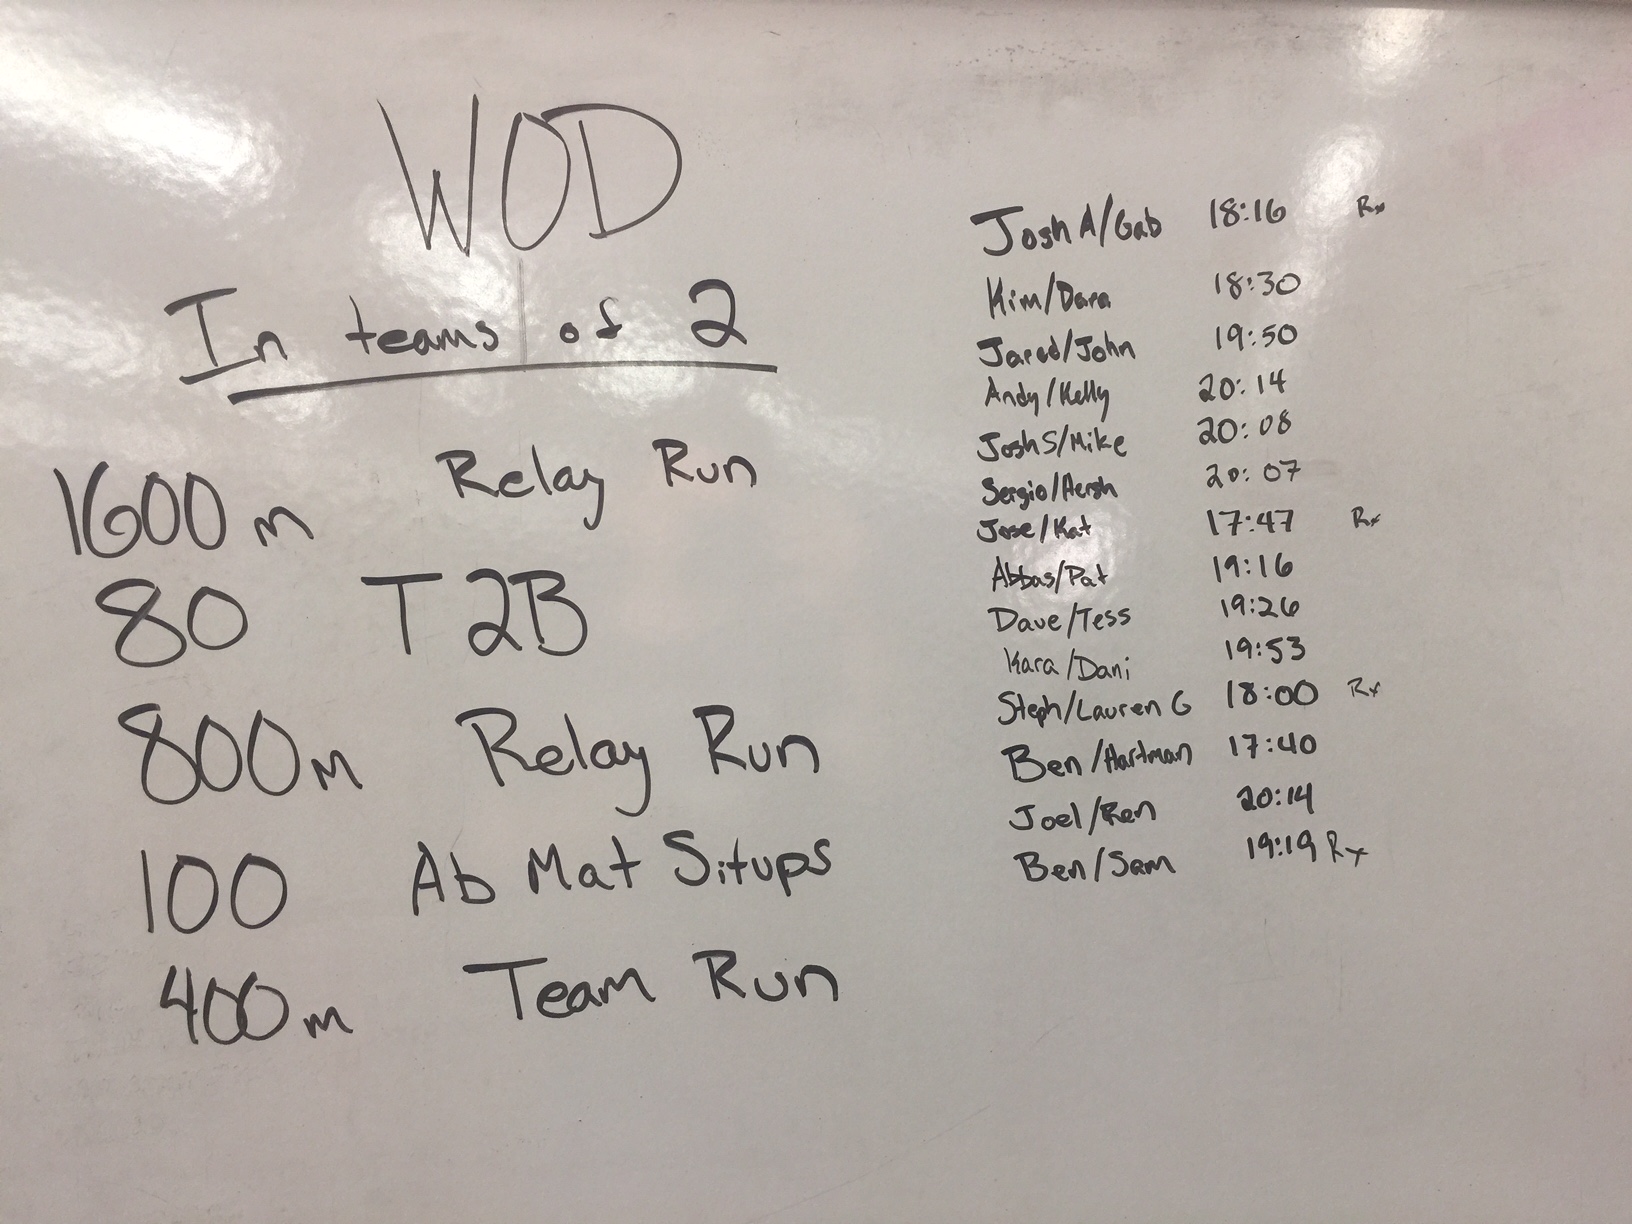 WOD
In teams of 2
1600m Relay Run
80 T2B
800m Relay Run
100 Ab Mat Situps
400m Team Run
Josh A/Gab 18:16 Rx
Kim/Dara 18:30
Jared/John 19:50
Andy/Kelly 20:14
Josh S/Mike 20:08
Sergio/Hersh 20:07
Jose/Kat 17:47 Rx
Abbas/Pat 19:16
Dave/Tess 19:26
Kara/Dani 19:53
Steph/Lauren G 18:00 Rx
Ben/Hartman 17:40
Joel/Ren 20:14
Ben/Sam 19:19 Rx